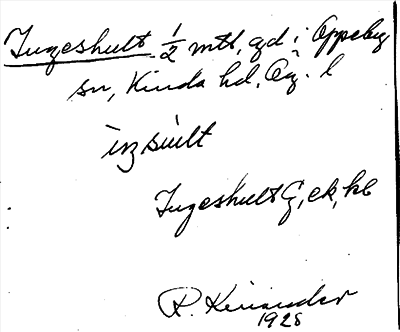 Ingeshult ½ mtl, gd i Oppeby
sn, Kinda hd, Ög. l
Ingeshult G, ek, kb
R. Kinander
1928